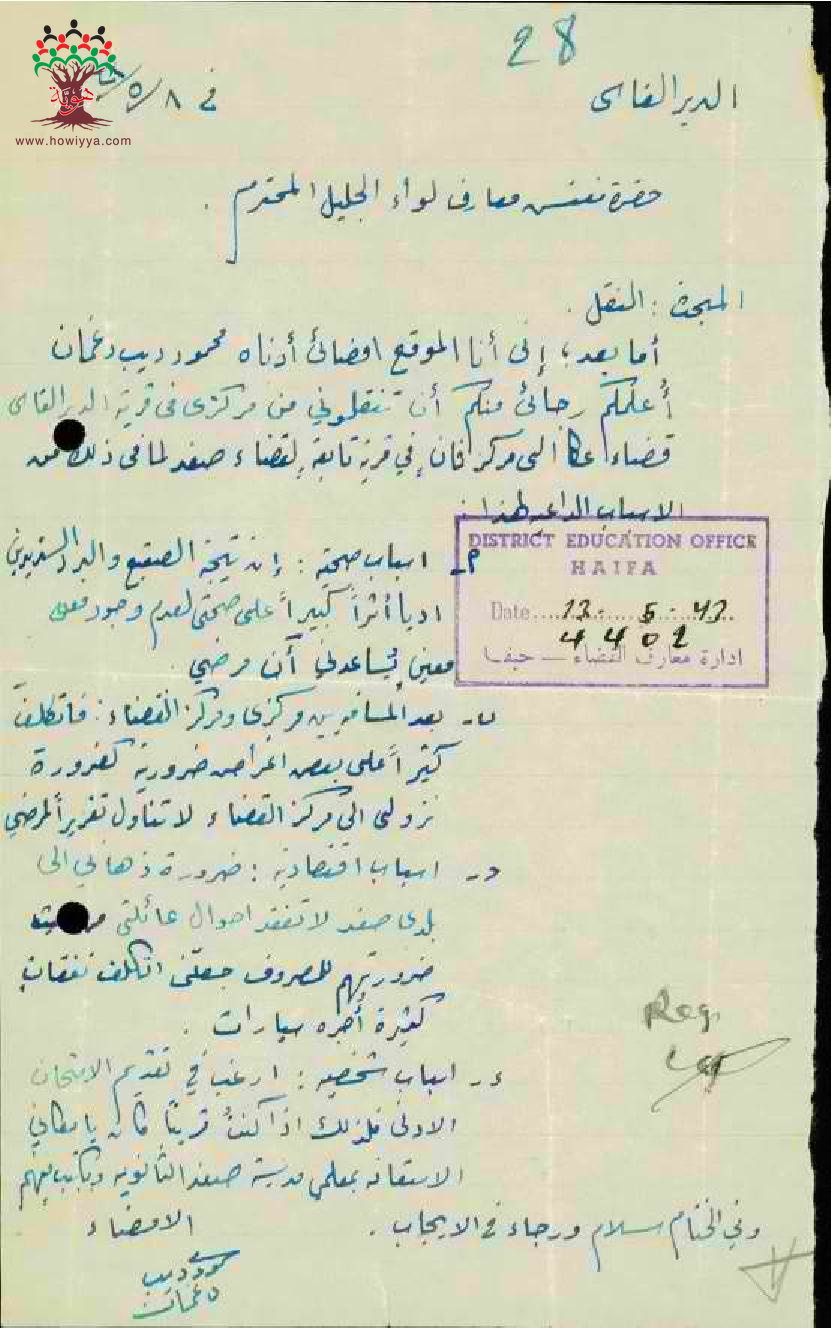 28
www.howiyya.com
الدير القاسي
في ٨/٥/
حضرة مفتش معارف لواء الجليل المحترم .
المبحث : النقل .
أما بعد ؛ إني أنا الموقع امضائي أدناه محمود ديب دغمان
أُعلمكم رجائي منكم أن تنقلوني من مركزي في قرية الدير القاسي
قضاء عكا الى مركز ثانٍ في قرية تابعة لقضاء صفد لما في ذلك من
الاسباب الداعية لهذا :
DISTRICT EDUCATION OFFICE
HAIFA
Date 12 - 5 - 42
4402
ادارة معارف القضاء — حيفا
أ- اسباب صحية : إن نتيجة الصقيع والبرد الشديدين
اديا أثراً كبيراً على صحتي لعدم وجود معي
معين يساعدني أثناء مرضي .
ب- بعد المسافة بين مركزي ومركز القضاء : فاتكلف
كثيراً على بعض اغراض ضرورية كضرورة
نزولي الى مركز القضاء لاتناول تقريراً لمرضي
ج- اسباب اقتصادية : ضرورة ذهابي الى
بلدي صفد لاتفقد احوال عائلتي
ضرورتهم للمصروف جعلتني اتكلف نفقات
كثيرة أجرة سيارات .
د- اسباب شخصية : ارغب في تقديم الامتحان
الادنى فلذلك اذا كنتُ قريباً كان بامكاني
الاستعانة بمعلمي مدرسة صفد الثانوية وبكتبهم
وفي الختام سلام ورجاء في الايجاب .
الامضاء
محمود ديب
دغمان
Reg.